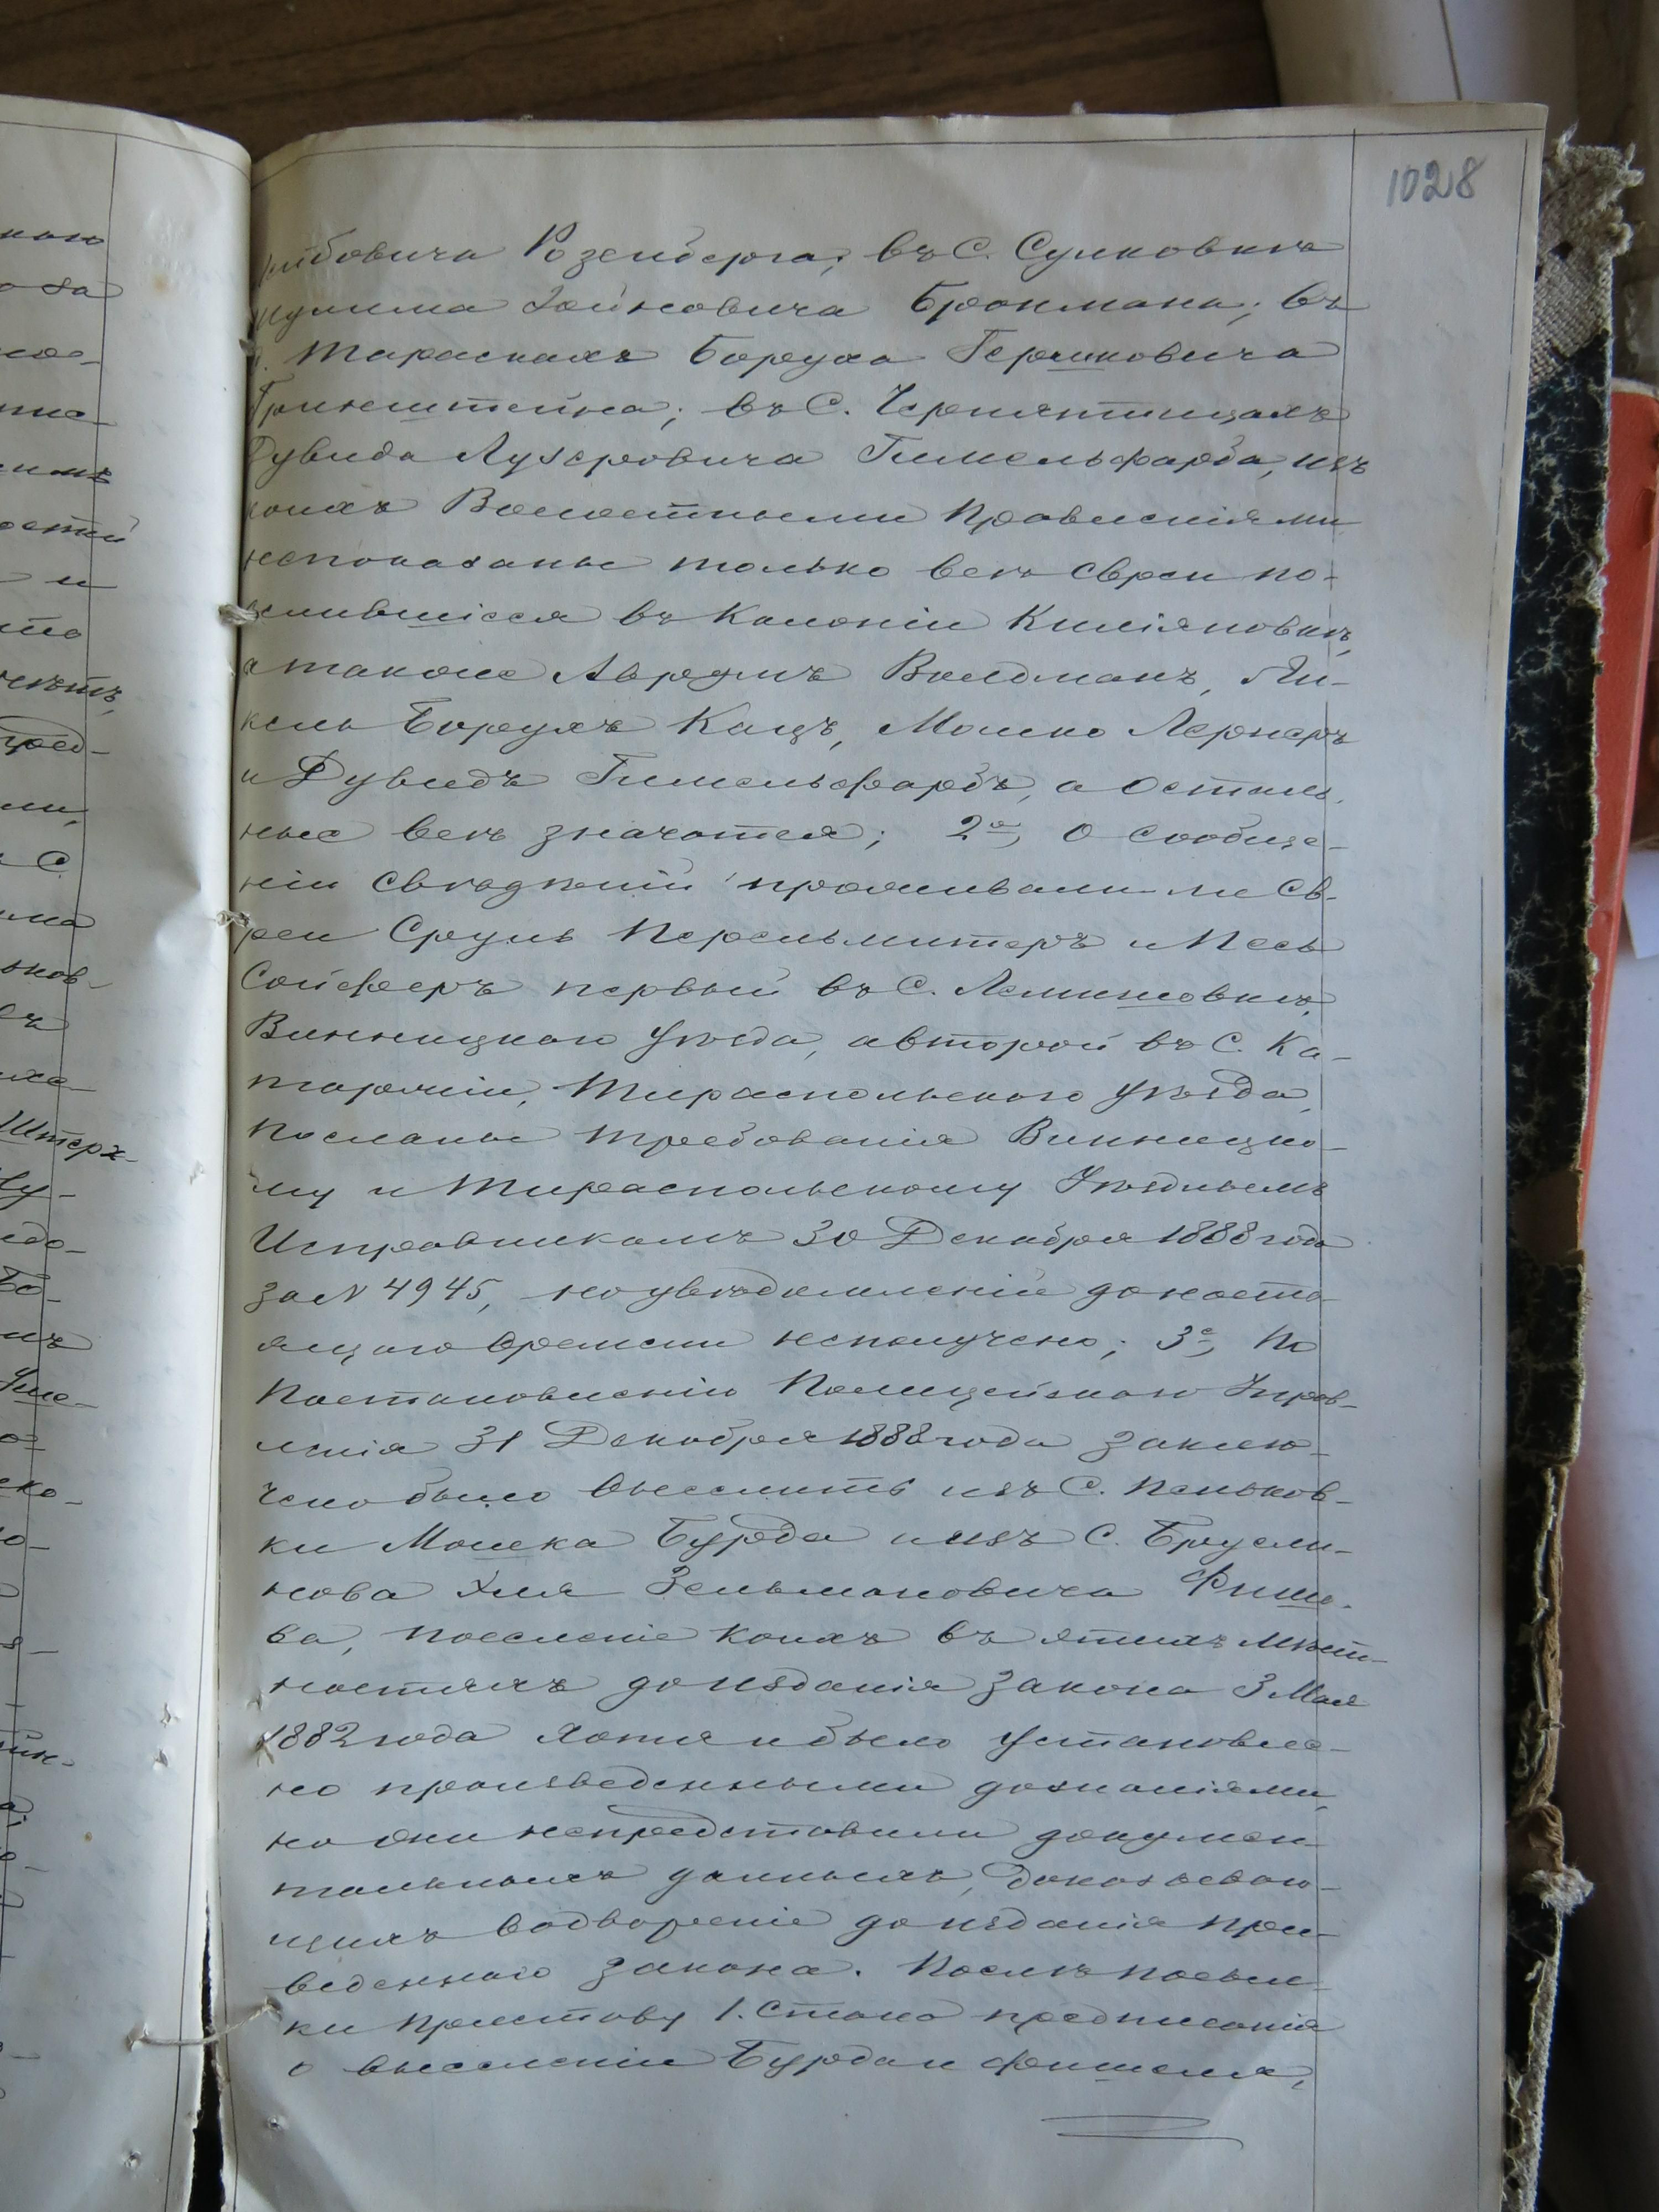 1028
Розенберга; въ С. Сулковкѣ
Хаймовича Брохмана; въ
Тараскахъ Боруха Гершковича
Гринштейна; въ С. Черемятицахъ
Дувида Лузеровича Гимельфарба, изъ
коихъ Волостными Правленіями
непоказаны только всѣ Евреи по-
селившіеся въ Колоніи Киліяновкѣ,
а также Аврумъ Вилдманъ, Ян-
кель Борухъ Кацъ, Мошко Лернеръ
и Дувидъ Гимельфарбъ, а осталь-
ные всѣ значатся; 2е, О сообще-
ніи свѣдѣній проживали-ли Ев-
реи Сруль Перельмитеръ и Песь
Сойферъ первый въ С. Лемешовкѣ,
Винницкаго уѣзда, а второй въ С. Ка-
таржіи, Тираспольскаго уѣзда,
посланы требованія Винницко-
му и Тираспольскому Уѣзднымъ
Исправникамъ 30 Декабря 1888 года
за N 4945, но увѣдомленій до насто
ящаго времени неполучено; 3е, По
Постановленію Полицейскаго Управ-
ленія 31 Декабря 1888 года заклю-
чено было выселить изъ С. Пеньков-
ки Мошка Бурда и изъ С. Брусли-
нова Хиля Зельмановича Фише-
ва, поселеніе коихъ въ этихъ мѣст-
ностяхъ до изданія закона 3 Мая
1882 года хотя и было установле-
но произведенными дознаніями,
но они непредставили докумен
тальныхъ данныхъ, доказываю-
щихъ водвореніе до изданія при-
веденнаго закона. Послѣ посыл-
ки Приставу 1. Стана предписанія
о выселеніи Бурда и Фишеля,